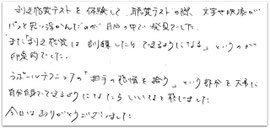 利き感覚テストを体験して、聴覚テストの際、文字や映像が
パッと思い浮かんだのが自分の中で発見でした。
また「利き感覚は訓練したらできるようになる」というのが
印象的でした。
ラポールテクニックの「相手の感情を拾う」という部分を大事に
自分自身でできるようになったらいいなと感じました
今日はありがとうございました